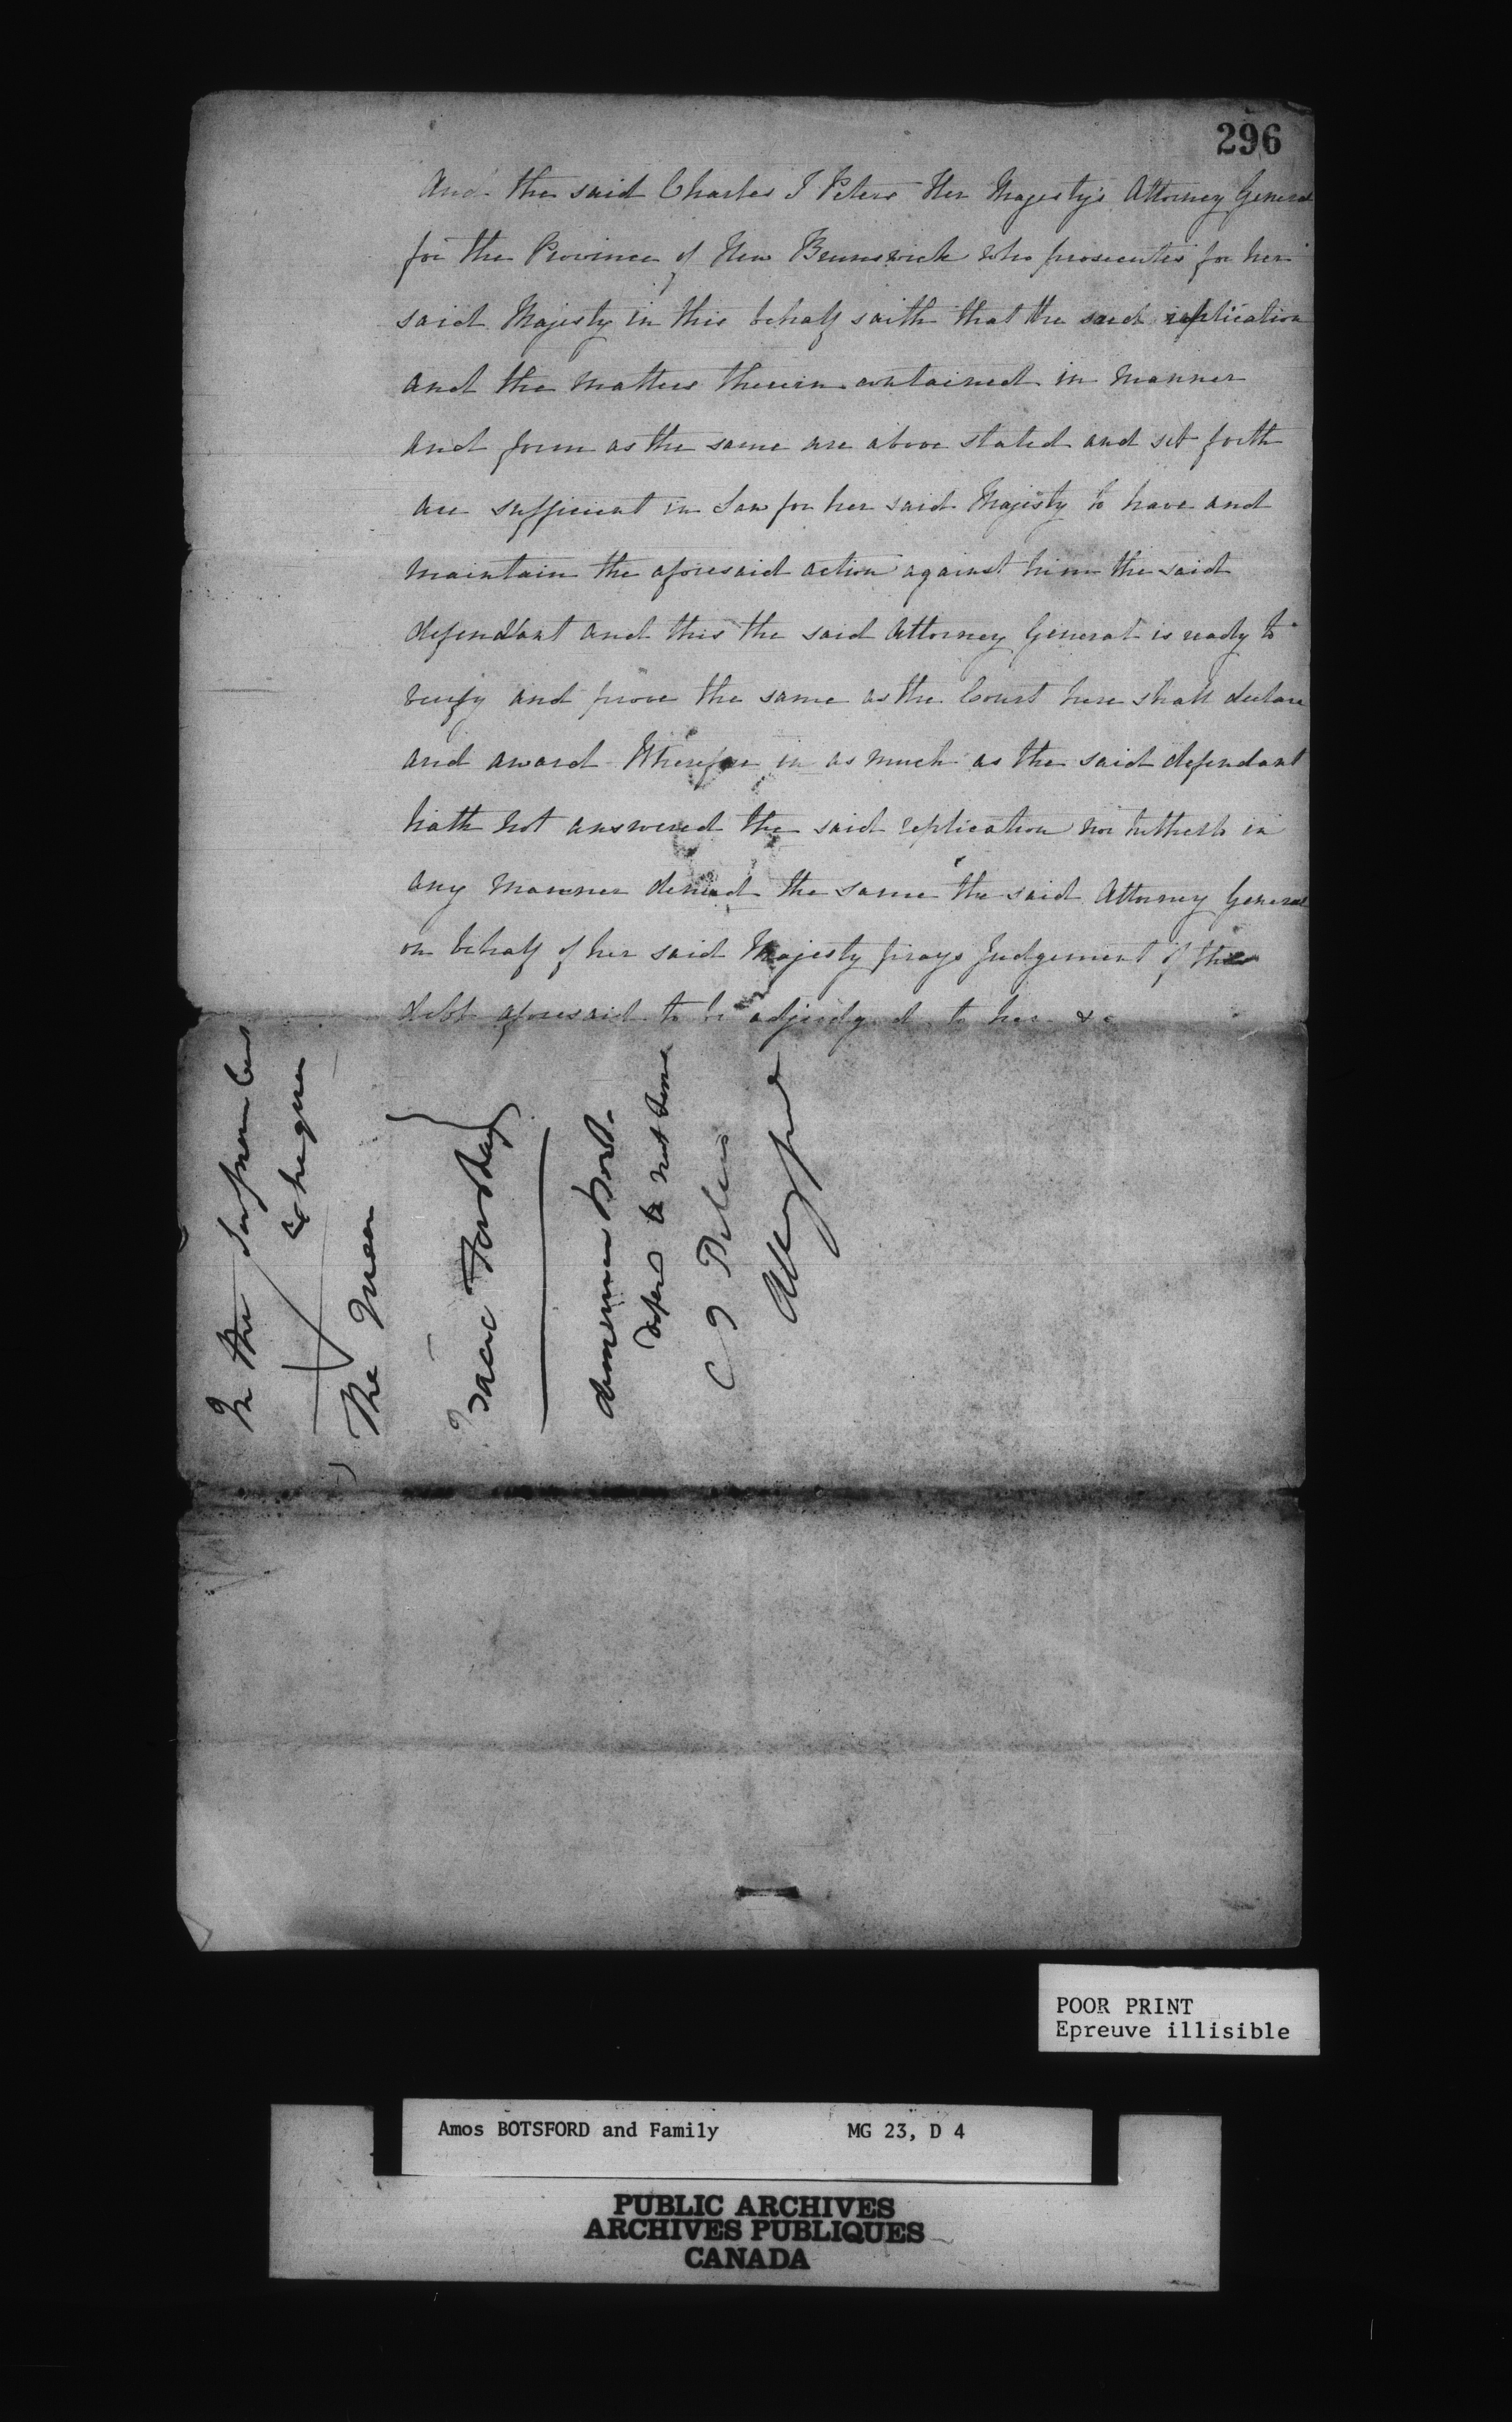 296
And the said Charles J Peters Her Majesty's Attorney General
for the Province of New Brunswick who prosecutes for her
said Majesty in this behalf saith that the said replication
and the matters therein contained in manner
and form as the same are above stated and set forth
are sufficient in Law for her said Majesty to have and
maintain the aforesaid action against him the said
defendant and this the said Attorney General is ready to
verify and prove the same as the Court here shall declare
and award Wherefore in as much as the said defendant
hath not answered the said replication nor hitherto in
any manner denied the same the said Attorney General
on behalf of her said Majesty prays Judgement of the
debt aforesaid to be adjudged to her &c
In the Supreme Court
Exchequer
The Queen
Isaac
C J Peters
POOR PRINT
Epreuve illisible
Amos BOTSFORD and Family MG 23, D 4
PUBLIC ARCHIVES
ARCHIVES PUBLIQUES
CANADA